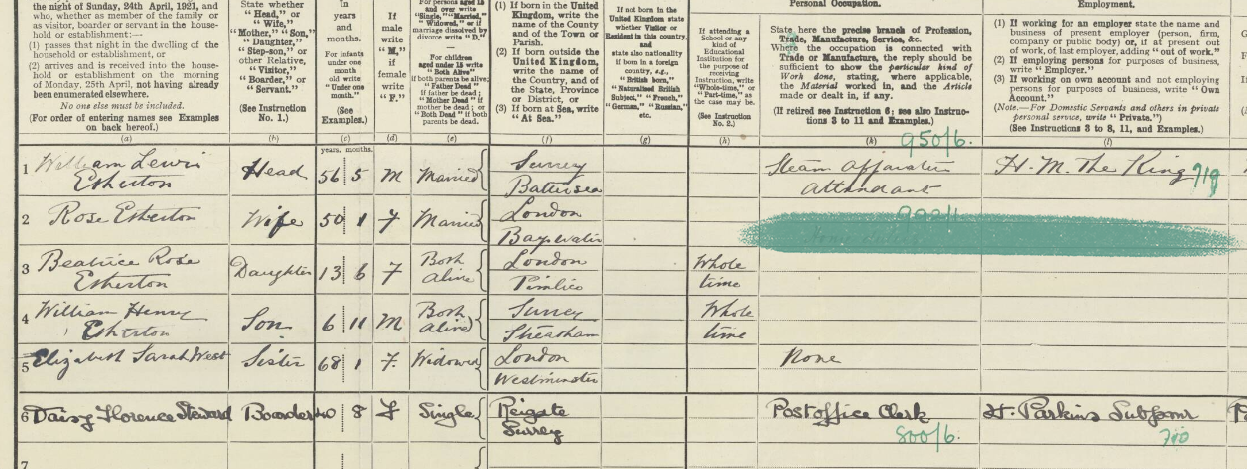 the night of Sunday, 24th April, 1921, and
who, whether as member of the family or
as visitor, boarder or servant in the house-
hold or establishment:—
(1) passes that night in the dwelling of the
household or establishment, or
(2) arrives and is received into the house-
hold or establishment on the morning
of Monday, 25th April, not having already
been enumerated elsewhere.
No one else must be included.
(For order of entering names see Examples
on back hereof.)
(a)
State whether
"Head," or
"Wife,"
"Mother," "Son,"
"Daughter,"
"Step-son," or
other Relative,
"Visitor,"
"Boarder," or
"Servant."
(See Instruction
No. 1.)
(b)
in
years
and
months.
For infants
under one
month
old write
"Under one
month."
(See
Examples.)
(c)
If
male
write
"M,"
if
female
write
"F."
(d)
For persons aged 15
and over write
"Single," "Married,"
"Widowed," or if
marriage dissolved by
divorce write "D."
For children
aged under 15 write
"Both Alive"
if both parents be alive;
"Father Dead"
if father be dead;
"Mother Dead" if
mother be dead; or
"Both Dead" if both
parents be dead.
(e)
(1) If born in the United
Kingdom, write the
name of the County
and of the Town or
Parish.
(2) If born outside the
United Kingdom, write
the name of the
Country, and of
the State, Province
or District, or
(3) If born at Sea, write
"At Sea."
(f)
If not born in the
United Kingdom state
whether Visitor or
Resident in this country,
and
state also nationality
if born in a foreign
country, e.g.,
"British born,"
"Naturalised British
Subject," "French,"
"German," "Russian,"
etc.
(g)
If attending a
School or any
kind of
Educational
Institution for the
purpose of
receiving
Instruction, write
"Whole-time," or
"Part-time," as
the case may be.
(See Instruction
No. 2.)
(h)
Personal Occupation.
State here the precise branch of Profession,
Trade, Manufacture, Service, &c.
Where the occupation is connected with
Trade or Manufacture, the reply should be
sufficient to show the particular kind of
Work done, stating, where applicable,
the Material worked in, and the Article
made or dealt in, if any.
(If retired see Instruction 6; see also Instruc-
tions 3 to 11 and Examples.)
(k)
950/6.
Employment.
(1) If working for an employer state the name and
business of present employer (person, firm,
company or public body) or, if at present out
of work, of last employer, adding "out of work."
(2) If employing persons for purposes of business,
write "Employer."
(3) If working on own account and not employing
persons for purposes of business, write "Own
Account."
(Note.—For Domestic Servants and others in private
personal service, write "Private.")
(See Instructions 3 to 8, 11, and Examples.)
(l)
years. months.
1 William Lewin Head 56 5 M Married Surrey Steam Apparatus H. M. The King 719
Esherton Battersea Attendant
2 Rose Esherton Wife 50 1 F Married London
Bayswater
3 Beatrice Rose Daughter 13 6 F Both London Whole
Esherton Alive Pimlico time
4 William Henry Son 6 11 M Both Surrey Whole
Esherton Alive Streatham time
5 Elizabeth Sarah West Sister 68 1 F. Widowed London None
Westminster
6 Daisy Florence Steward Boarder 40 8 F Single Reigate Post office Clerk H. Parkins Subpmr
Surrey 800/6. 710
7